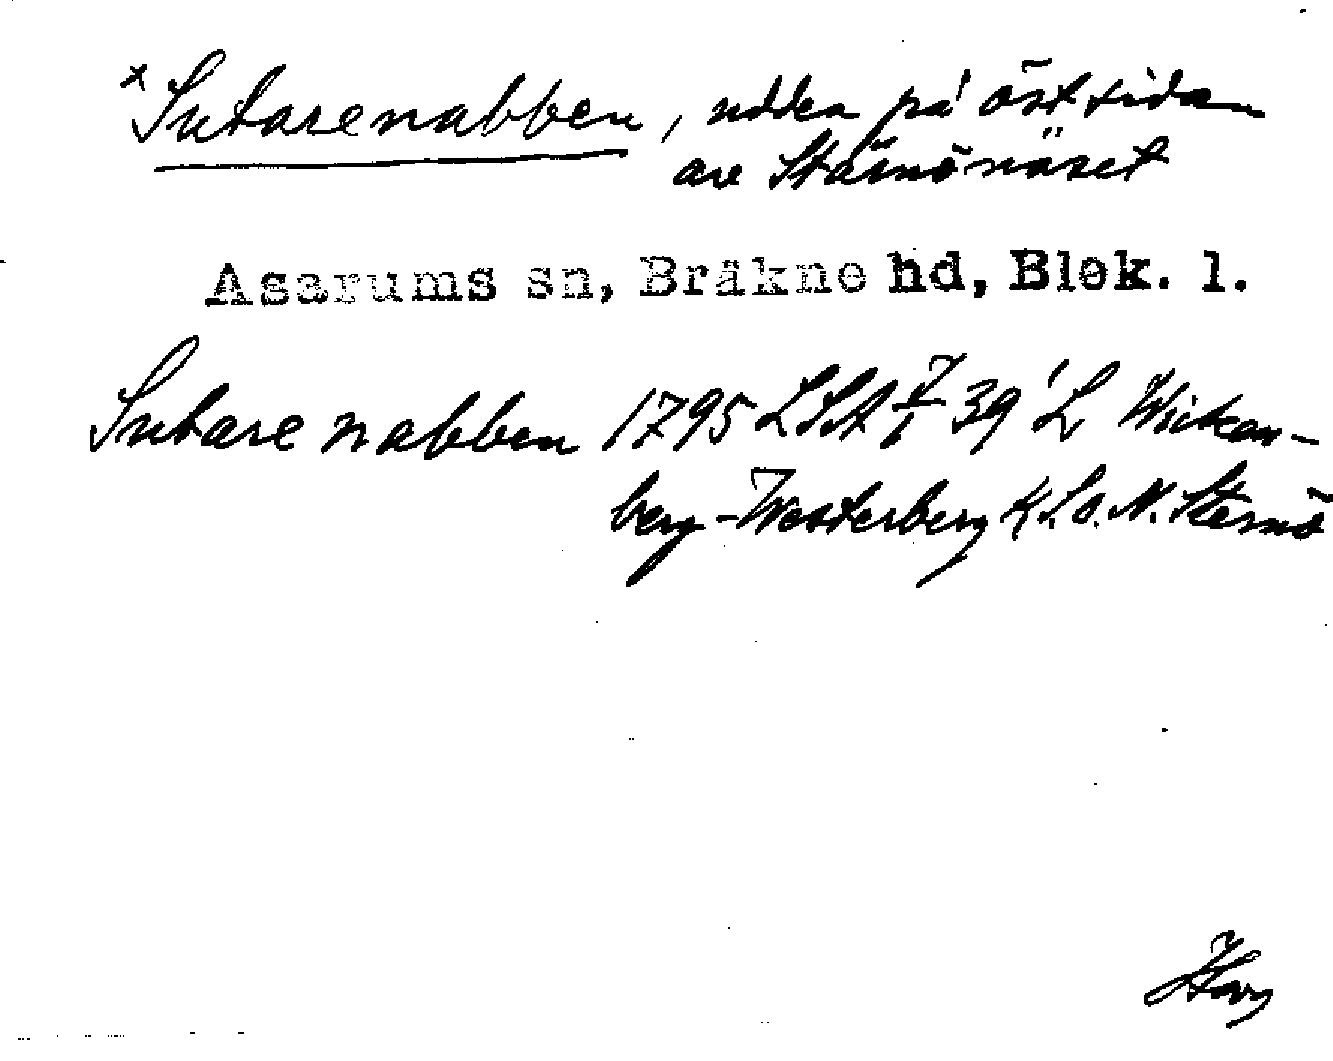 x Sutarenabben, udden på östsidan
av Stärnönäset
Asarums sn, Bräkne hd, Blek. l.
Sutare nabben 1795 LSA 39 L Wickan-
berg-Westerberg K.L.o. N. Sternö